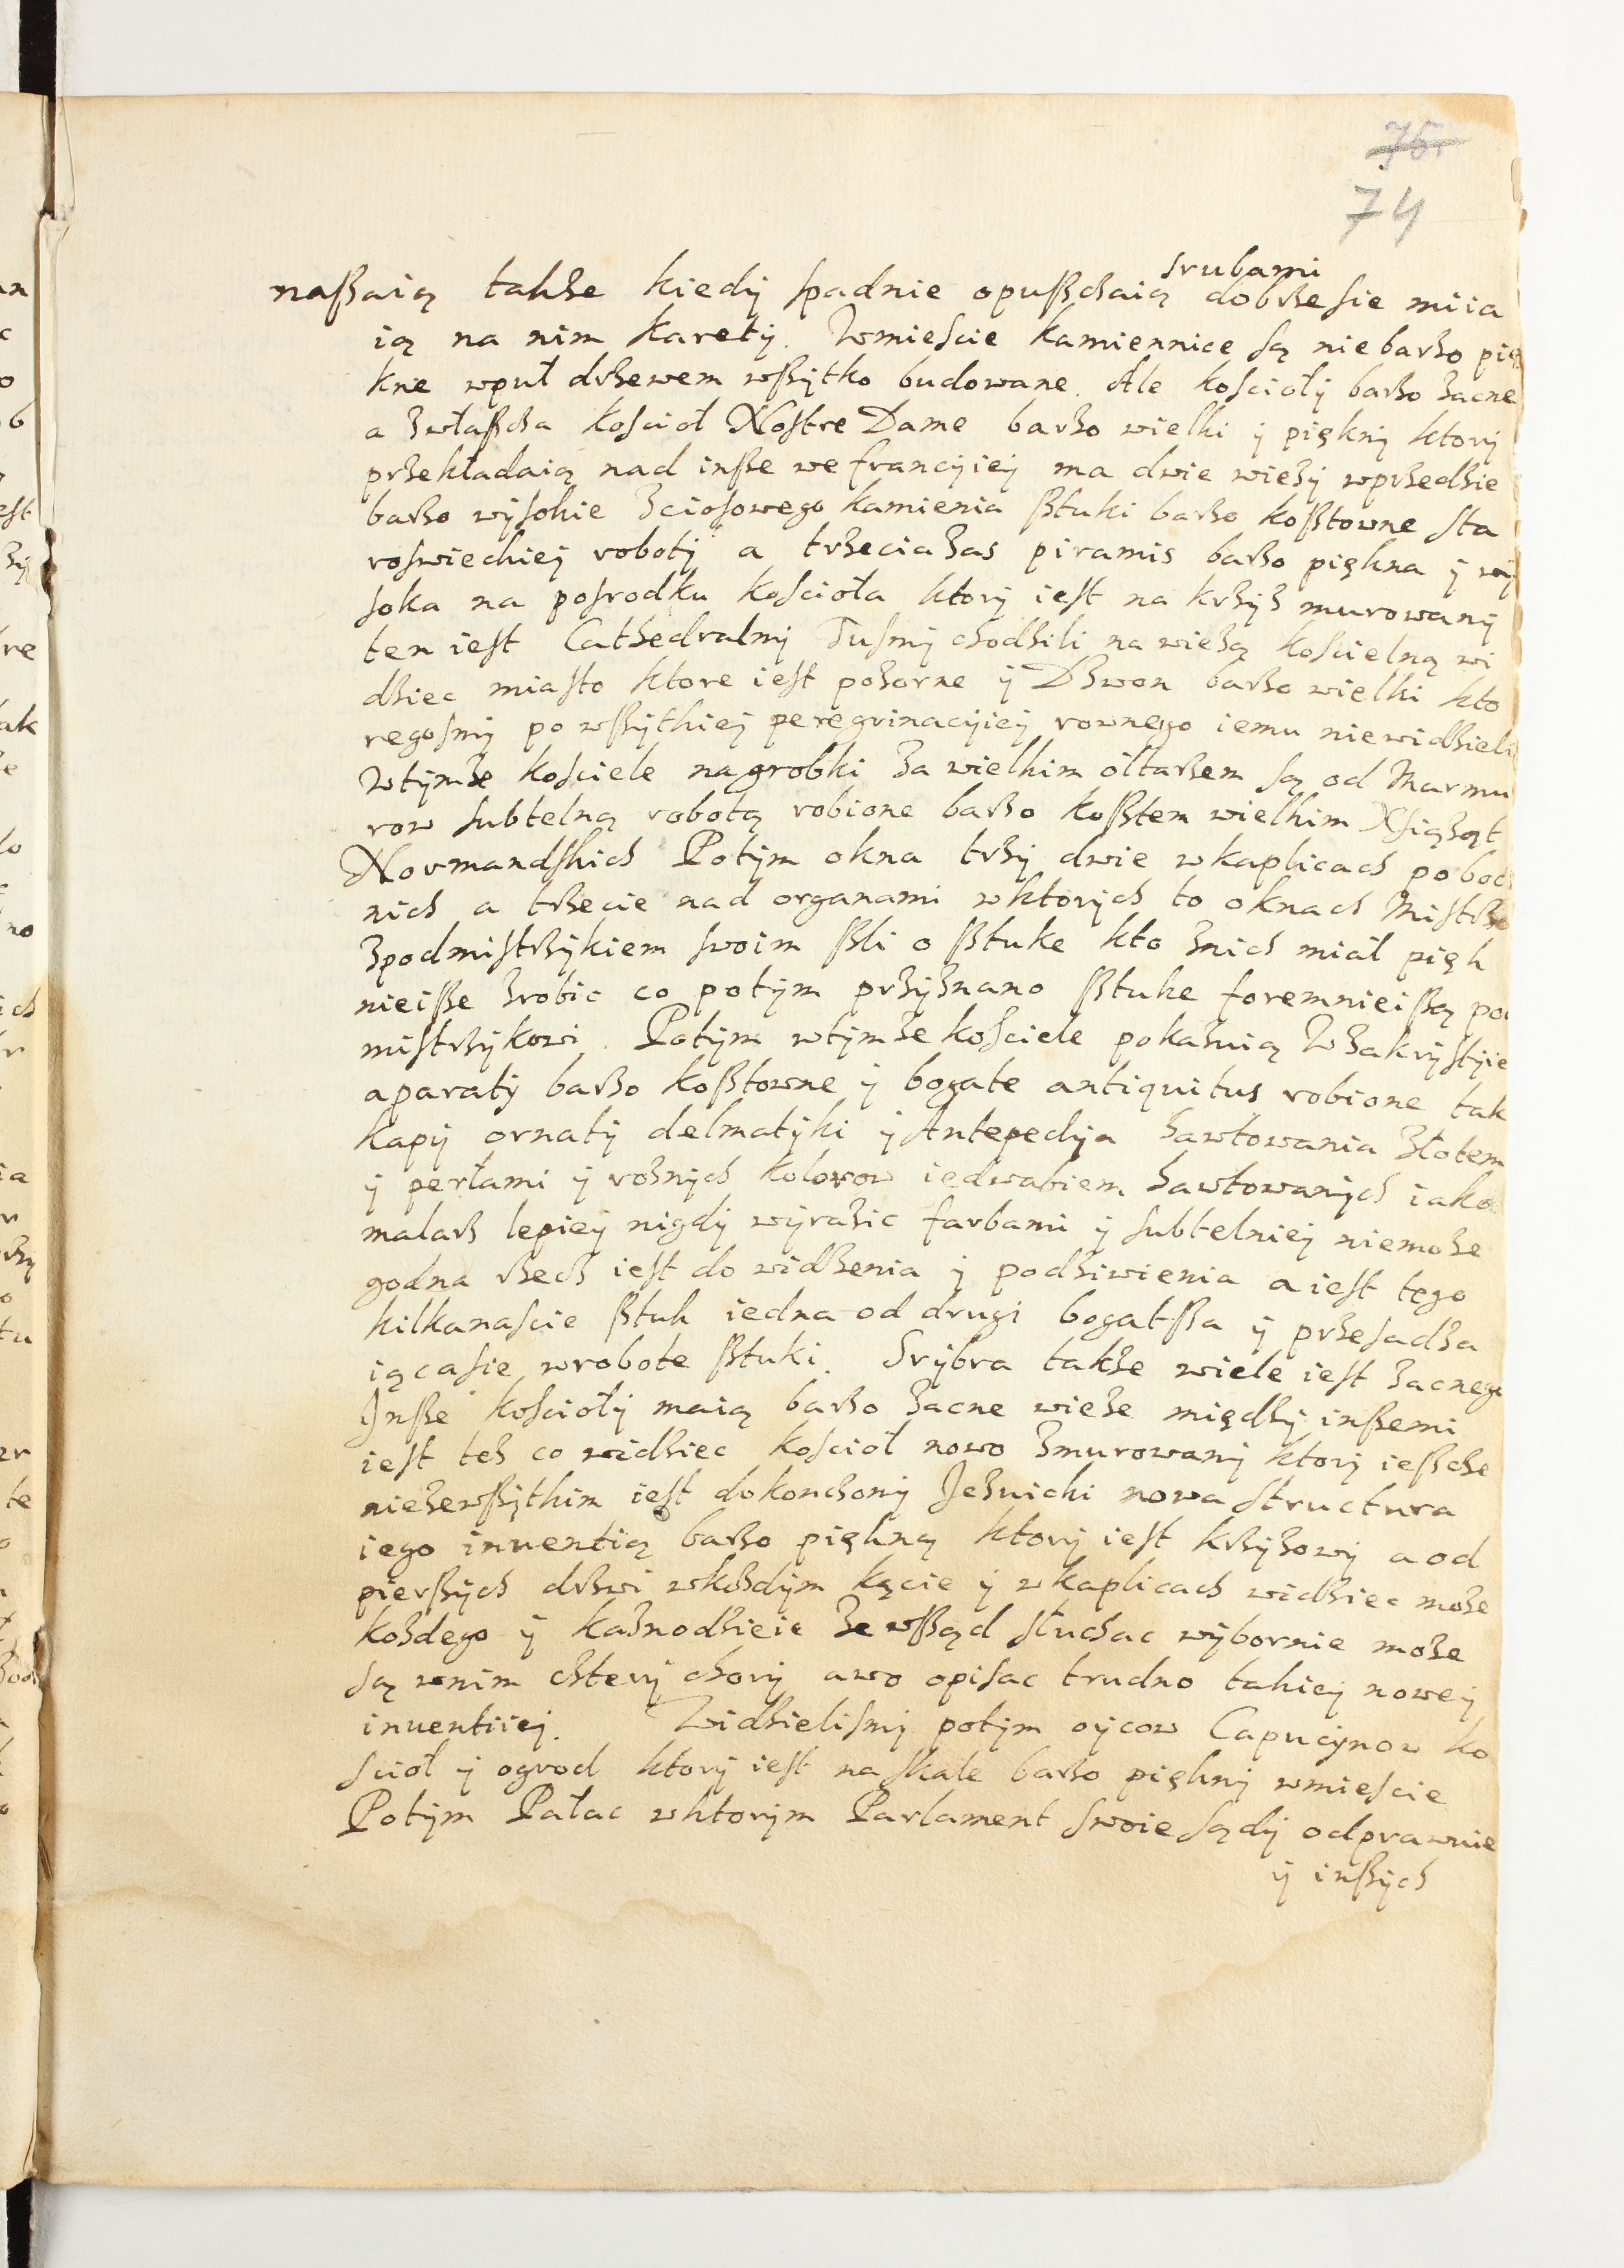 75
74
srubami
naszaią takze kiedy spadnie opuszczaią dobrzesie miia
ią na nim karety. Wmiescie kamiennice są niebarzo pię
kne wpuł drzewem wszytko budowane. Ale kościoły barzo zacne
a zwłaszcza kosciol Nostre Dame barzo wielki y piękny ktory
przekładaią nad insze we francyiey ma dwie wiezy wprzedzie
barzo wysokie zciosowego kamienia sztuki barzo kosztowne sta
roswieckiey roboty a trzecia zas piramis barzo piękna y wy
soka na posrodku kościoła ktory iest na krzyz murowany
ten iest Cathedralny Tusmy chodzili na wiezą koscielną wi
dziec miasto ktore iest pozorne y Dzwon barzo wielki kto
regosmy po wszytkiey peregrinacyiey rownego iemu niewidzieli
Wtymze kosciele nagrobki za wielkim ołtarzem są od Marmu
row subtelną robotą robione barzo kosztem wielkim Xsiąząt
Normandskich Potym okna trzy dwie wkaplicach poboc
nich a trzecie nad organami wktorych to oknach Mistrz
zpodmistrzykiem swoim szli o sztuke kto znich miał pięk
nieisze zrobic co potym przyznano sztuke foremnieiszą pod
mistrzykowi. Potym wtymze kosciele pokazuią W Zakrystyie
aparaty barzo kosztowne y bogate antiquitus robione tak
kapy ornaty delmatyki y Antepedya hawtowania złotem
y perłami y roznych kolorow iedwabiem hawtowanych iako
malarz lepiey nigdy wyrazic farbami y subtelniey niemoze
godna rzecz iest do widzenia y podziwienia a iest tego
kilkanascie sztuk iedna od drugi bogatsza y przesadza
iącasie wrobote sztuki. Srybra takze wiele iest zacnego
Insze kościoły maią barzo zacne wieze między inszemi
iest tez co widziec kościoł nowo zmurowany ktory ieszcze
niezewszytkim iest dokonczony Jezuicki nowa structura
iego inuentią barzo piękną ktory iest krzyzowy a od
pierszych drzwi wkozdym kącie y wkaplicach widziec moze
kozdego y kaznodzieie ze wsząd słuchac wybornie moze
są wnim cztery chory awo opisac trudno takiey nowey
inuentiiey. Widzielismy potym oycow Capucynow ko
scioł y ogrod ktory iest na skale barzo piękny wmiescie
Potym Pałac wktorym Parlament swoie sądy odprawuie
y inszych